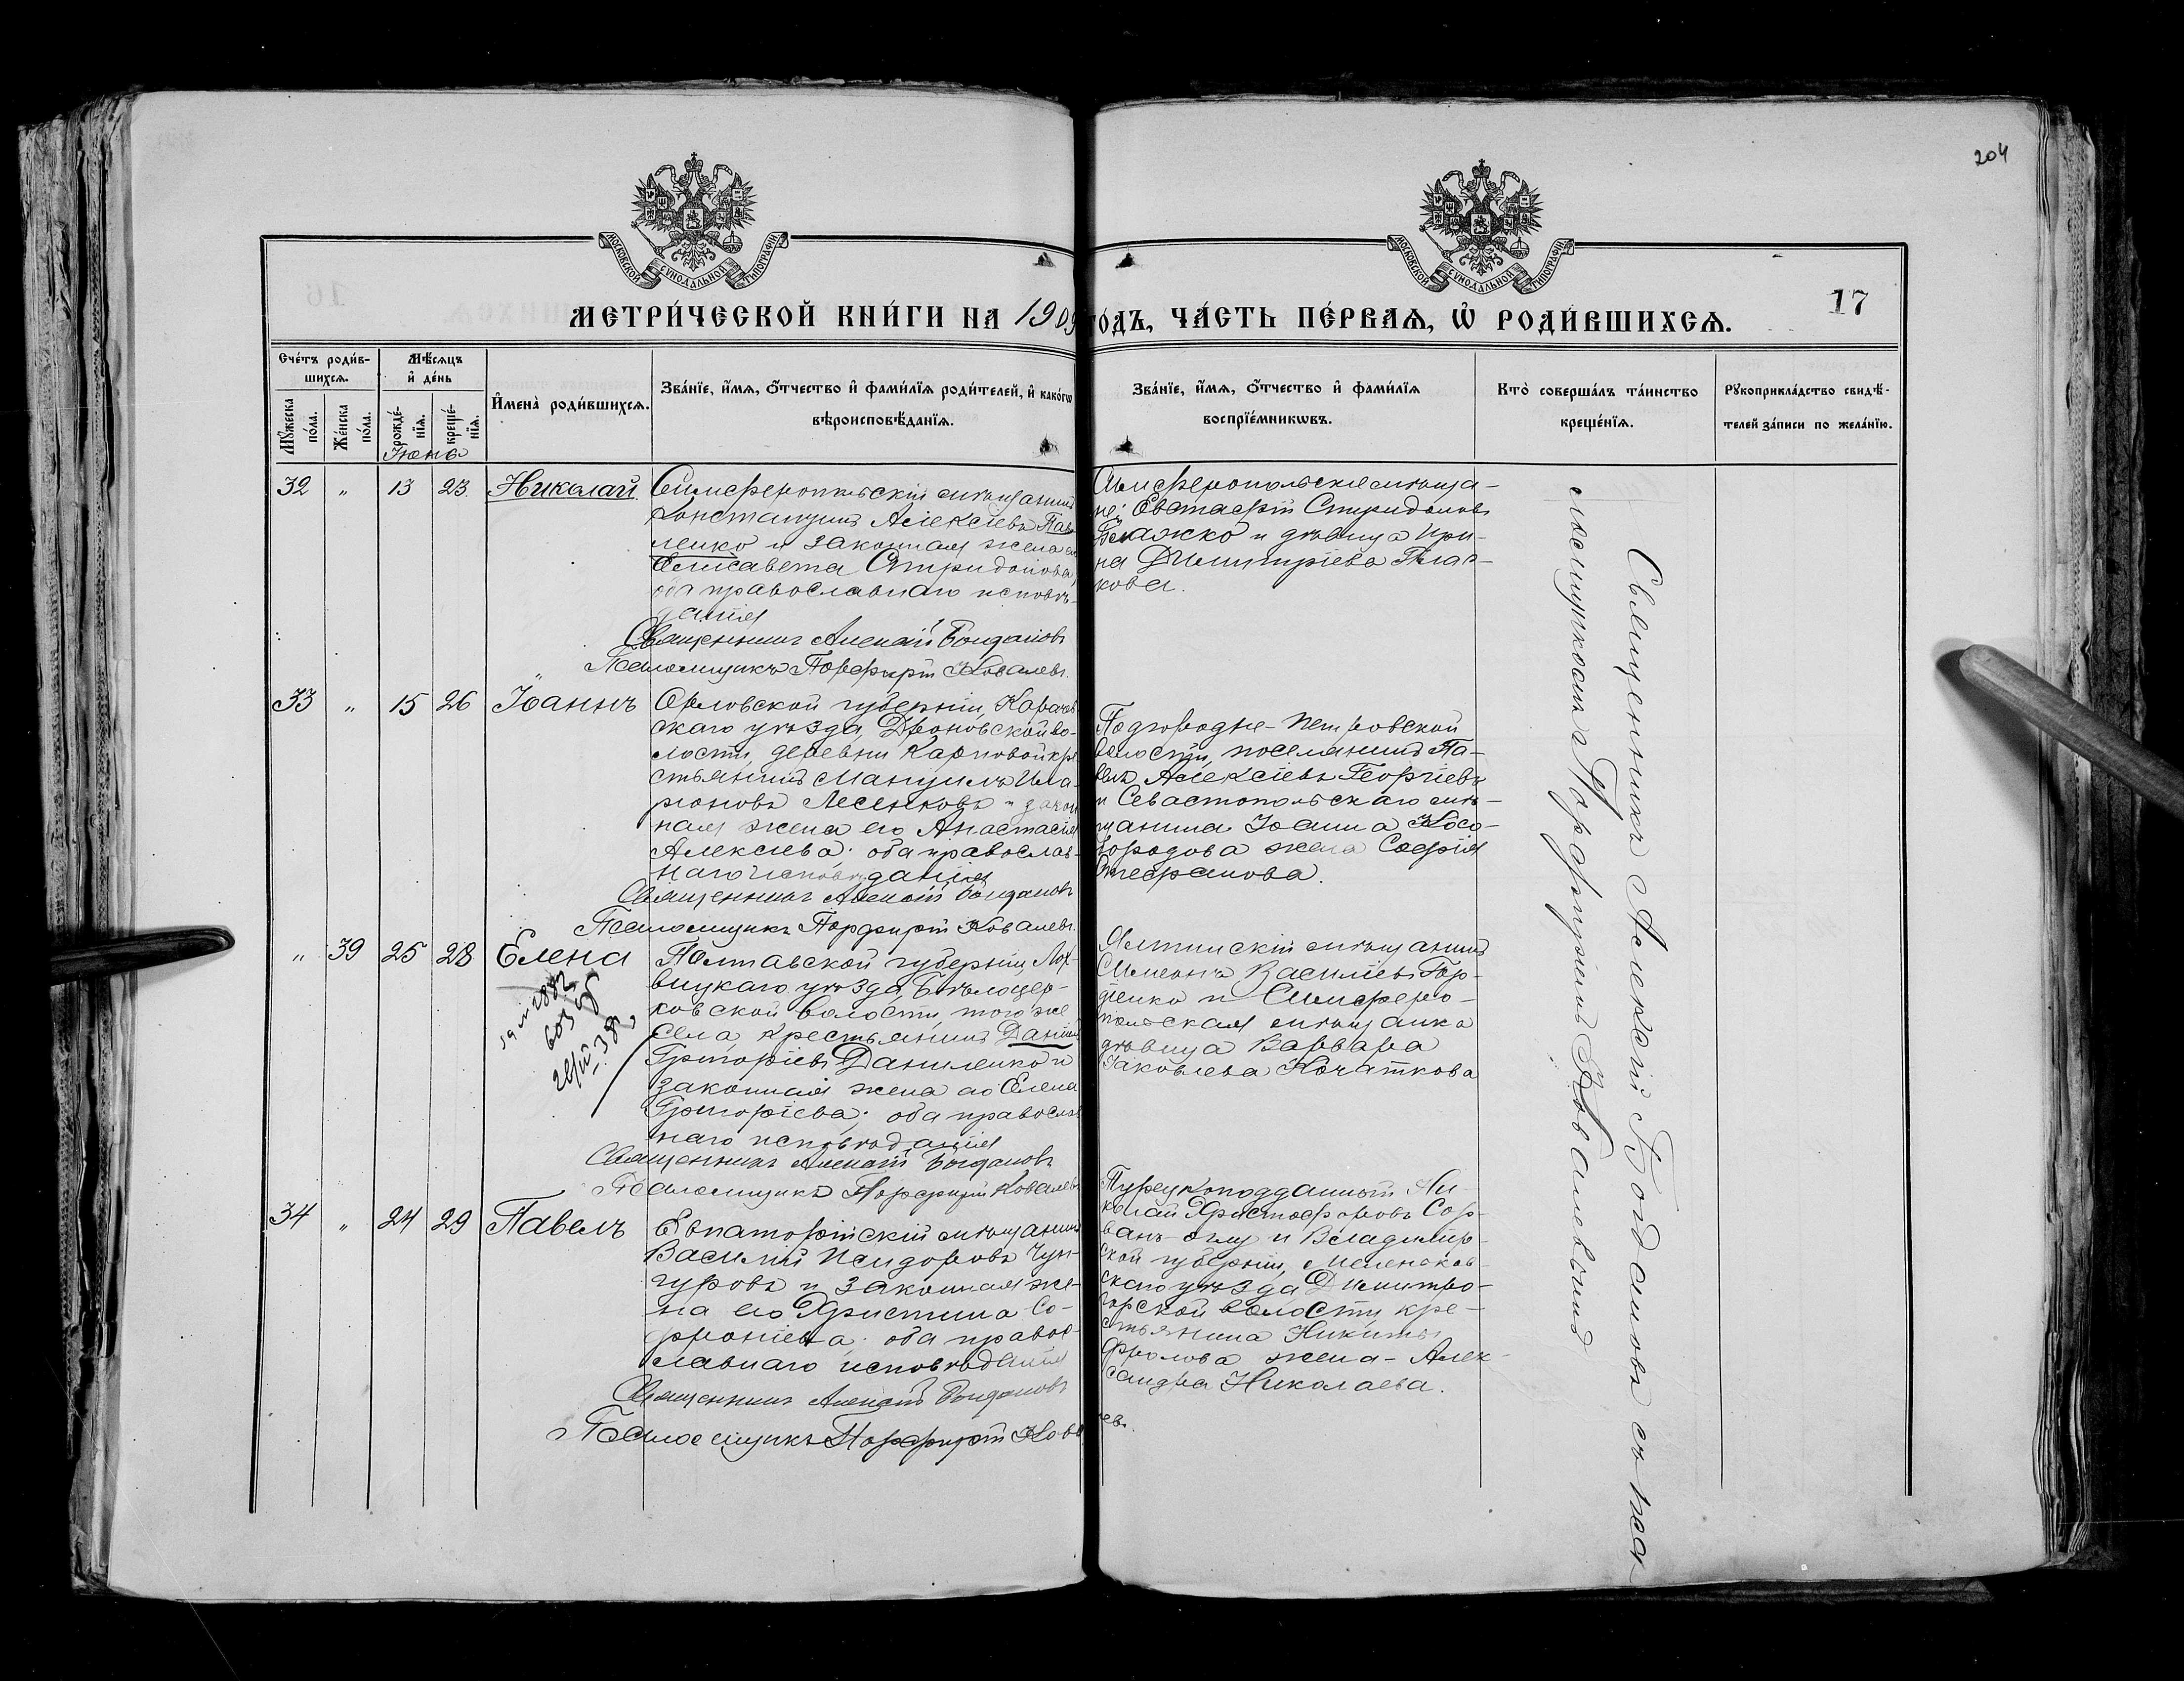 204
МОСКОВСКОЙ СУНОДАЛЬНОЙ ТИПОГРАФІИ
МОСКОВСКОЙ СУНОДАЛЬНОЙ ТИПОГРАФІИ
МЕТРИ́ЧЕСКОЙ КНИ́ГИ НА 1909 ГОДЪ, ЧА́СТЬ ПЕ́РВАѦ, Ѡ҆ РОДИ́ВШИХСѦ.
17
Сче́тъ роди́в-
шихсѧ.
Мꙋ́жеска
по́ла.
Же́нска
по́ла.
Мѣ́сѧцъ
и҆ де́нь
рожде́-
нїѧ.
креще́-
нїѧ.
Іюнь
И҆мена̀ роди́вшихсѧ.
Зва́нїе, и҆́мѧ, ѻ҆́тчество и҆ фами́лїѧ роди́телей, и҆ како́гѡ
вѣроисповѣ́данїѧ.
Зва́нїе, и҆́мѧ, ѻ҆́тчество и҆ фами́лїѧ
воспрїе́мникѡвъ.
Кто̀ соверша́лъ та́инство
креще́нїѧ.
Рꙋкоприкла́дство свидѣ́-
телей за́писи по жела́нїю.
32 " 13 23 Николай
Симферопольскій мѣщанинъ
Константинъ Алексѣевъ Пав
ленко и законная жена его
Елисавета Спиридонова,
оба православнаго исповѣ-
данія
Священникъ Алексій Богдановъ
Псаломщикъ Порфирій Ковалевъ.
Симферопольскіе мѣща-
не: Евстафій Спиридоновъ
и дѣвица Ири-
на Димитріева
кова.
33 " 15 26 Іоаннъ
Орловской губерніи, Карачев
скаго уѣзда, Дроновской во-
лости, деревни Карповой кре
стьянинъ Мануилъ Ила-
ріоновъ Лесенковъ и закон
ная жена его Анастасія
Алексѣева; оба православ-
наго исповѣданія
Священникъ Алексій Богдановъ
Псаломщикъ Порфирій Ковалевъ.
Подгородне-Петровской
волости, поселянинъ Па-
велъ Алексѣевъ Георгіевъ
и Севастопольскаго мѣ-
щанина Іоанна Косо-
воротова жена Софія
Стефанова.
" 39 25 28 Елена
Полтавской губерніи, Лох-
вицкаго уѣзда, Бѣлоцер-
ковской волости того же
села, крестьянинъ Даніилъ
Григоріевъ Даниленко и
законная жена его Елена
Григоріева; оба православ
наго исповѣданія
Священникъ Алексій Богдановъ
Псаломщикъ Порфирій Ковалевъ
Ялтинскій мѣщанинъ
Симеонъ Василіевъ Гор-
діенко и Симферо-
польская мѣщанка
дѣвица Варвара
Іаковлева Кочаткова
34 " 24 29 Павелъ
Евпаторійскій мѣщанинъ
Василій Исидоровъ Чун-
гуровъ и законная же-
на его Христина Со-
фроніева; оба правос-
лавнаго исповѣданія
Священникъ Алексій Богдановъ
Псаломщикъ Порфирій Ковалевъ.
Турецкоподданный Ни-
колай Христофоровъ Сор-
ванъ-оглу и Владимір-
ской губерніи, Меленков-
скаго уѣзда Димитро-
горской волости, кре-
стьянина Никиты
Фролова жена - Алек-
сандра Николаева.
Священникъ Алексій Богдановъ съ пса-
ломщикомъ Порфиріемъ Ковалевымъ